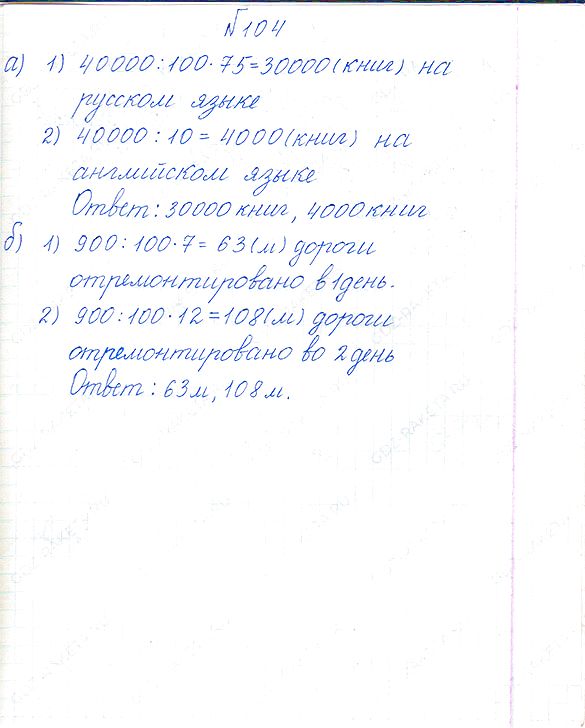 №104
а) 1) 40000:100·75=30000(книг) на
русском языке
2) 40000:10=4000(книг) на
английском языке
Ответ: 30000 книг, 4000 книг
б) 1) 900:100·7=63(м) дороги
отремонтировано в 1 день.
2) 900:100·12=108(м) дороги
отремонтировано во 2 день
Ответ: 63 м, 108 м.